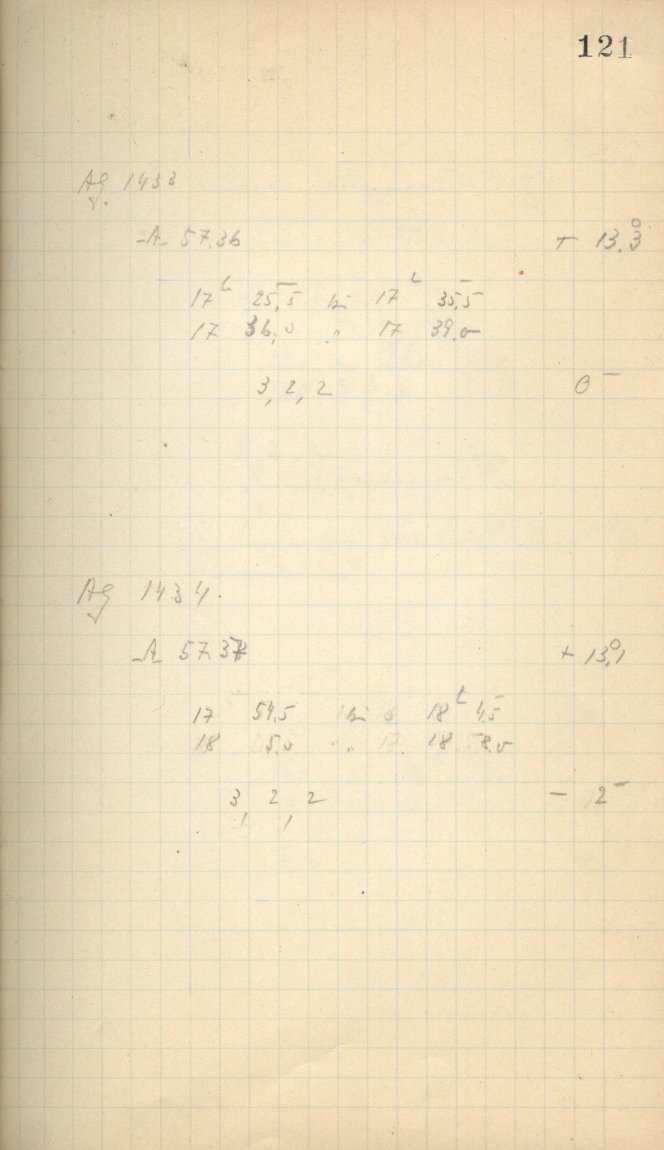 121
Ag 1433
A 57.36 + 13.°3
17h 25,5 bis 17h 35,5
17 36,0 " 17 39,0
3, 2, 2 0
Ag 1434
A 57.37 + 13,°1
17 54,5 bis 18h 4,5
18 5,0 " 18 8,0
3, 2, 2 - 2